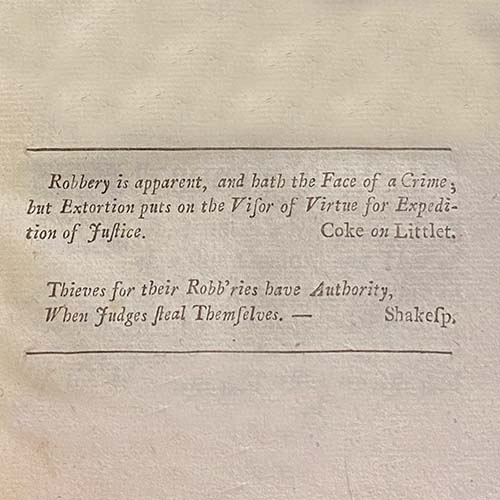 Robbery is apparent, and hath the Face of a Crime;
but Extortion puts on the Viſor of Virtue for Expedi-
tion of Juſtice. Coke on Littlet.
Thieves for their Robb'ries have Authority,
When Judges ſteal Themſelves. — Shakeſp.